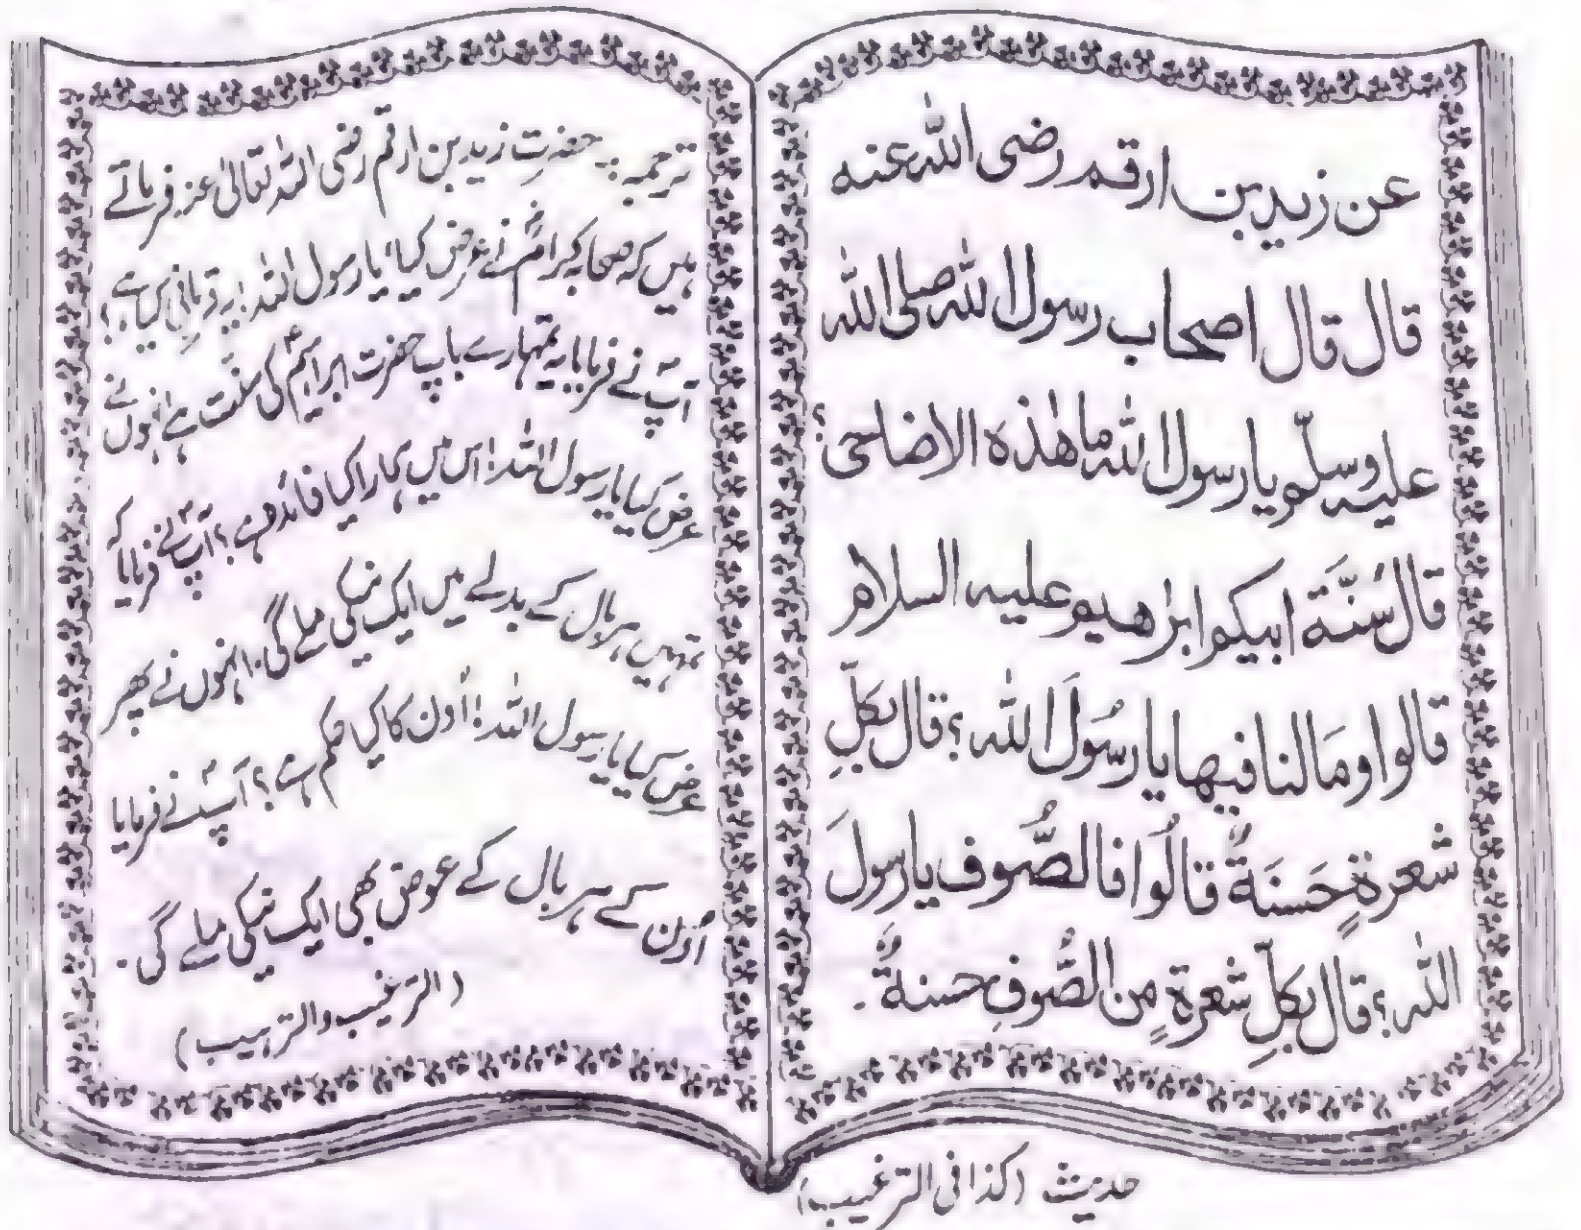 عن زید بن ارقم رضی اللہ عنہ
قال قال اصحاب رسول اللہ صلی اللہ
علیہ وسلّم یا رسول اللہ ما ھٰذہ الاضاحی؟
قال سُنَّۃَ ابیکم ابراھیم علیہ السلام
قالوا ومَا لنا فیھا یا رسُولَ اللہ؟ قال بکلِّ
شعرۃٍ حَسنَۃٌ قالُوا فالصُّوف یا رسولَ
اللہ؟ قال بکلِّ شعرۃٍ من الصُّوفِ حسنۃٌ۔
ترجمہ:۔ حضرتِ زید بن ارقم رضی اللہ تعالیٰ عنہ فرماتے
ہیں کہ صحابہ کرامؓ نے عرض کیا، یا رسول اللہ! یہ قربانی کیا ہے؟
آپؐ نے فرمایا یہ تمہارے باپ حضرت ابراہیمؑ کی سنّت ہے انہوں نے
عرض کیا یا رسول اللہ! اس میں ہمارا کیا فائدہ ہے؟ آپؐ نے فرمایا کہ
تمہیں ہر بال کے بدلے میں ایک نیکی ملے گی۔ انہوں نے پھر
عرض کیا یا رسول اللہ! اُون کا کیا حکم ہے؟ آپؐ نے فرمایا
اُون کے ہر بال کے عوض بھی ایک نیکی ملے گی۔
(الترغیب والترہیب)
حدیث (کذا فی الترغیب)